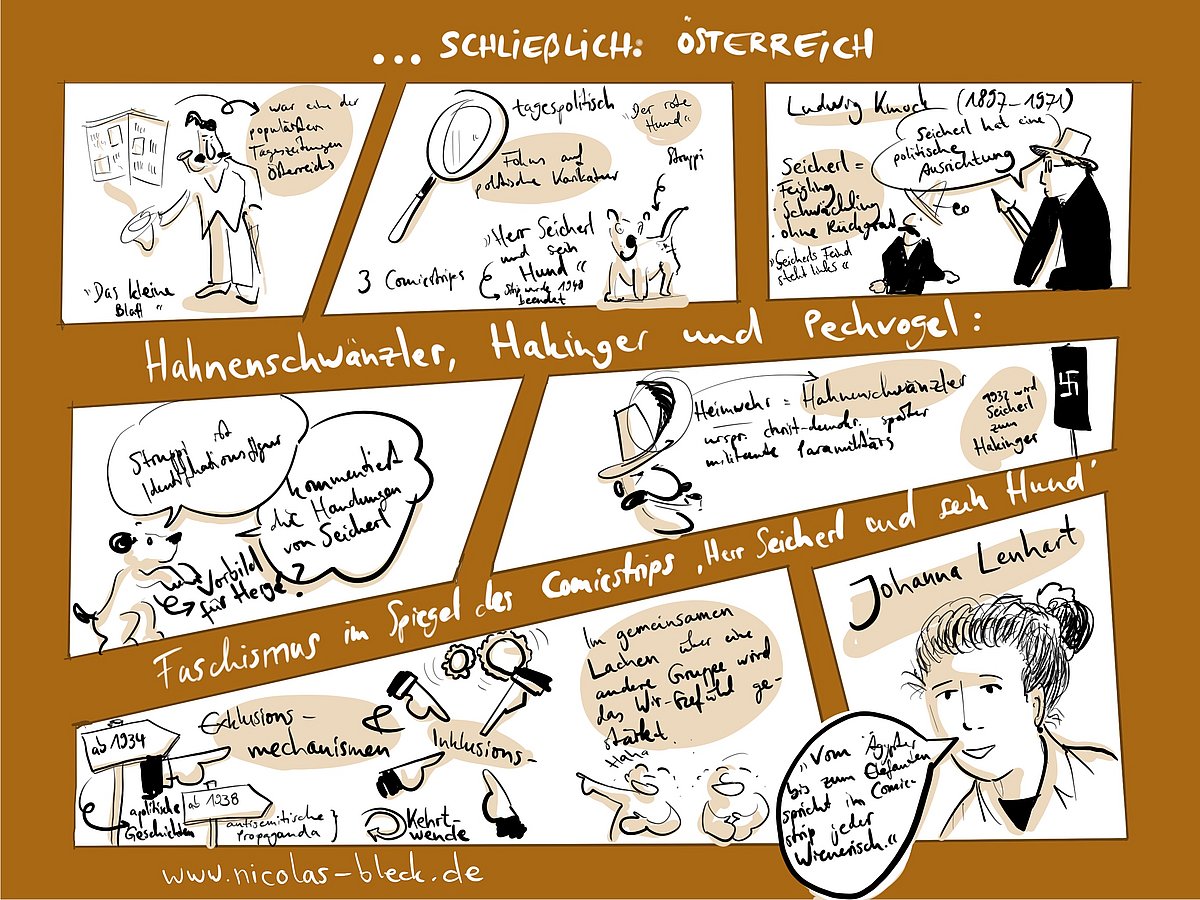 ... SCHLIEßLICH: ÖSTERREICH
war eine der
populärsten
Tageszeitungen
Österreichs
"Das kleine
Blatt"
tagespolitisch
Fokus auf
politische Karikatur
"Der rote
Hund"
Struppi
3 Comicstrips
"Herr Seicherl
und sein
Hund"
Strip wurde 1940
beendet
Ludwig Kmoch (1897-1971)
Seicherl hat eine
politische
Ausrichtung
Seicherl =
· Feigling
· Schwächling
· ohne Rückgrad
"Seicherls Feind
steht links"
Hahnenschwänzler, Hakinger und Pechvogel:
Struppi ist
Identifikationsfigur
kommentiert
die Handlungen
von Seicherl
Vorbild
für Hergé?
Heimwehr = Hahnenschwänzler
urspr. christ-demokr., später
militante Paramilitärs
1937 wird
Seicherl
zum
Hakinger
Faschismus im Spiegel des Comicstrips 'Herr Seicherl und sein Hund'
ab 1934
apolitische
Geschichten
ab 1938
antisemitische
Propaganda
Exklusions-
mechanismen
&
Inklusions-
Kehrt-
wende
Im gemeinsamen
Lachen über eine
andere Gruppe wird
das Wir-Gefühl ge-
stärkt.
Haha
Johanna Lenhart
"Vom Ägypter
bis zum Elefanten
spricht im Comic-
strip jeder
Wienerisch."
www.nicolas-bleck.de